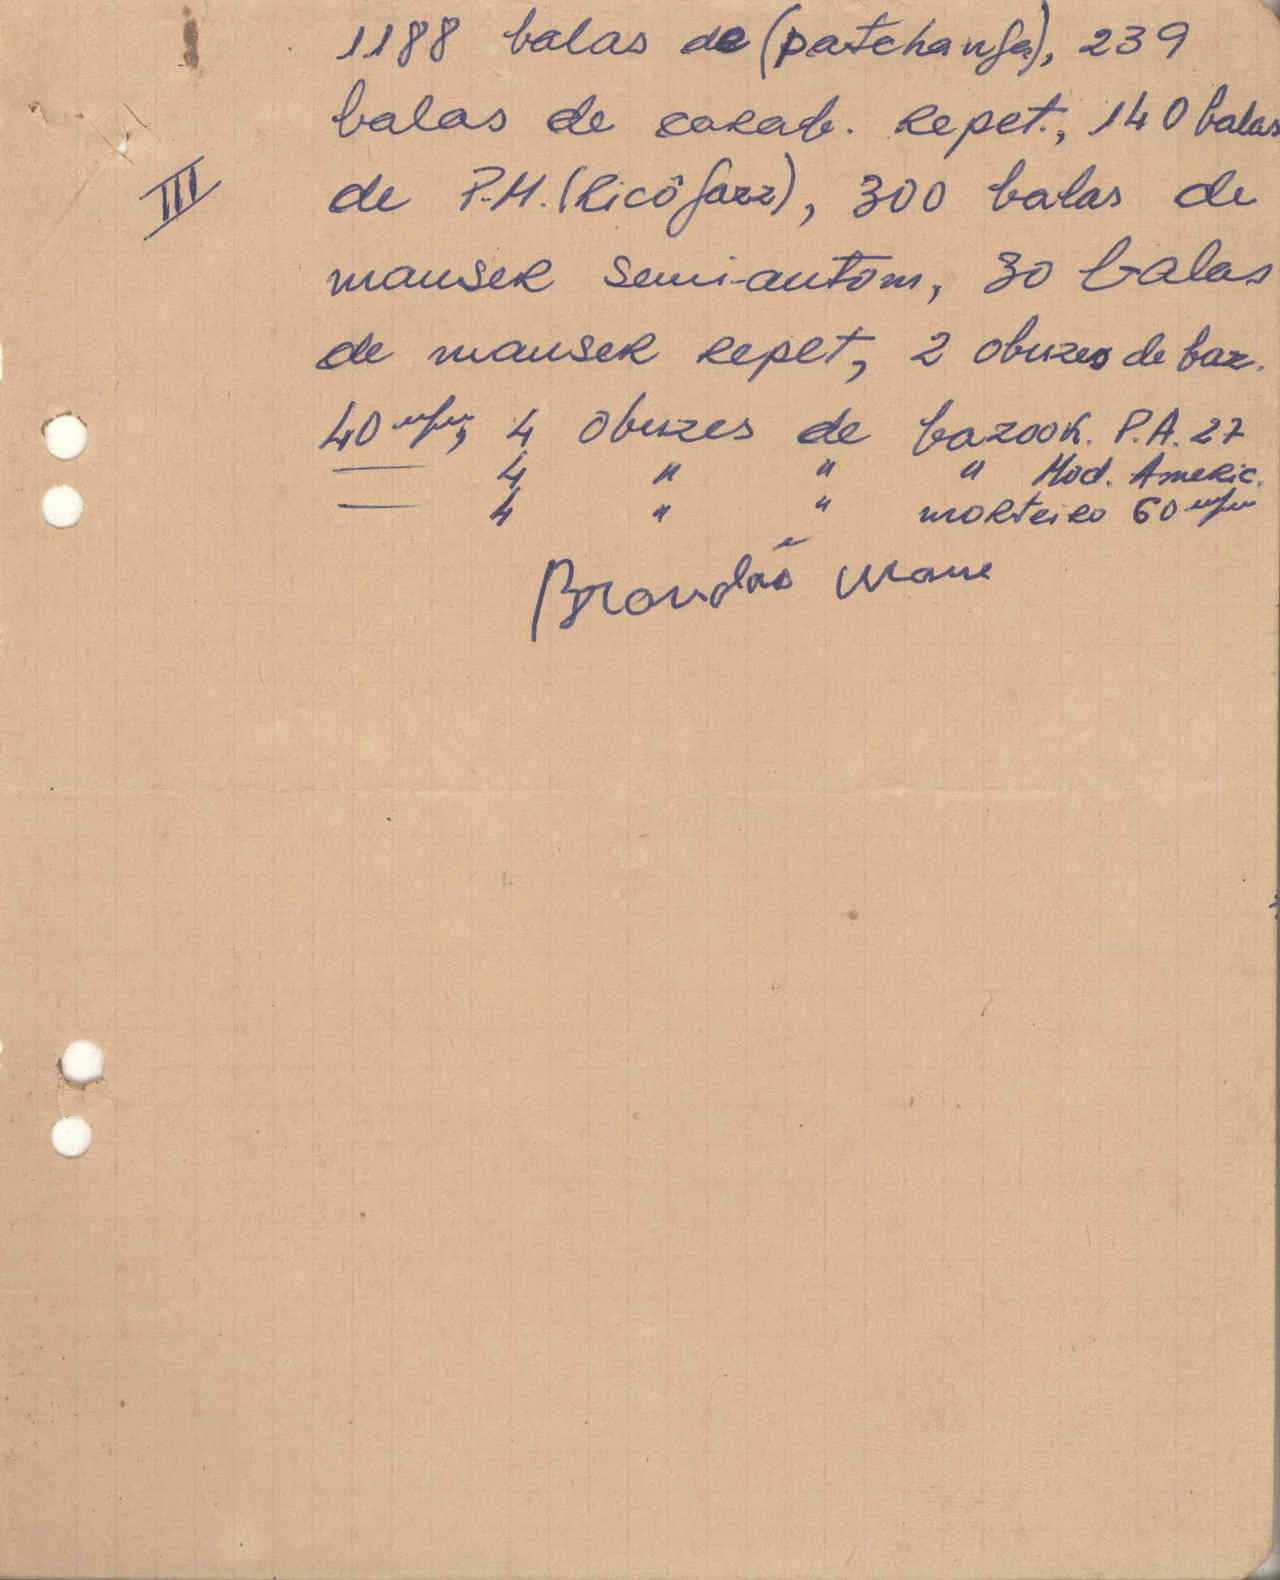 1188 balas de (patchanga), 239
balas de carab. repet., 140 balas
III
de P.M. (Ricô Jazz), 300 balas de
mauser semi-autom, 30 balas
de mauser repet, 2 obuzes de baz.
40 m/m, 4 obuzes de bazook. P.A. 27
4 " " " Mod. Americ.
4 " " morteiro 60 m/m
Brandão Mane